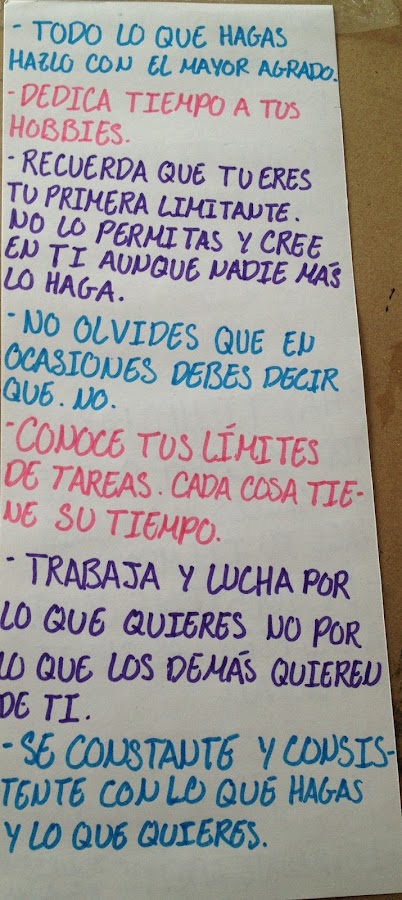 - TODO LO QUE HAGAS
HAZLO CON EL MAYOR AGRADO.
- DEDICA TIEMPO A TUS
HOBBIES.
- RECUERDA QUE TU ERES
TU PRIMERA LIMITANTE.
NO LO PERMITAS Y CREE
EN TI AUNQUE NADIE MÁS
LO HAGA.
- NO OLVIDES QUE EN
OCASIONES DEBES DECIR
QUE. NO.
- CONOCE TUS LÍMITES
DE TAREAS. CADA COSA TIE-
NE SU TIEMPO.
- TRABAJA Y LUCHA POR
LO QUE QUIERES NO POR
LO QUE LOS DEMÁS QUIEREN
DE TI.
- SE CONSTANTE Y CONSIS-
TENTE CON LO QUE HAGAS
Y LO QUE QUIERES.